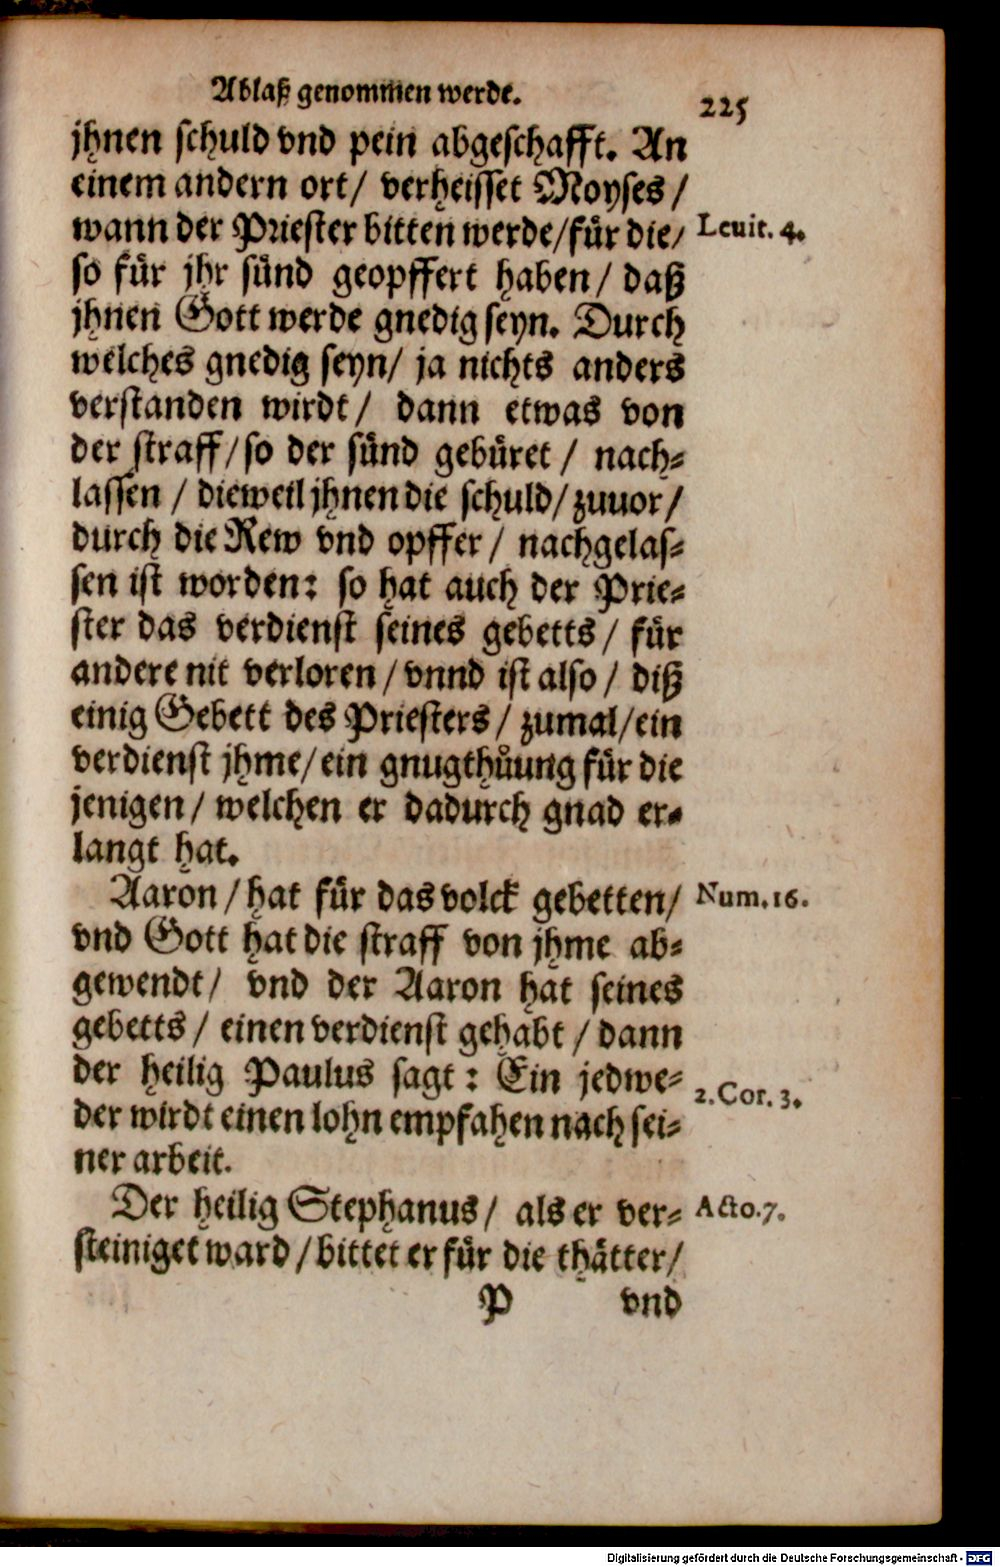 Ablaß genommen werde.
225
jhnen schuld vnd pein abgeschafft. An
einem andern ort/ verheisset Moyses/
wann der Priester bitten werde/für die/
Leuit. 4.
so für jhr sünd geopffert haben/ daß
jhnen Gott werde gnedig seyn. Durch
welches gnedig seyn/ ja nichts anders
verstanden wirdt/ dann etwas von
der straff/so der sünd gebüret/ nach⸗
lassen/ dieweil jhnen die schuld/zuuor/
durch die Rew vnd opffer/ nachgelas⸗
sen ist worden: so hat auch der Prie⸗
ster das verdienst seines gebetts/ für
andere nit verloren/vnnd ist also/ diß
einig Gebett des Priesters/ zumal/ein
verdienst jhme/ein gnugthůung für die
jenigen/ welchen er dadurch gnad er⸗
langt hat.
Aaron/hat für das volck gebetten/
Num.16.
vnd Gott hat die straff von jhme ab⸗
gewendt/ vnd der Aaron hat seines
gebetts/ einen verdienst gehabt/dann
der heilig Paulus sagt: Ein jedwe⸗
2.Cor. 3.
der wirdt einen lohn empfahen nach sei⸗
ner arbeit.
Der heilig Stephanus/ als er ver⸗
Acto.7.
steiniget ward/bittet er für die thätter/
P vnd
Digitalisierung gefördert durch die Deutsche Forschungsgemeinschaft - DFG